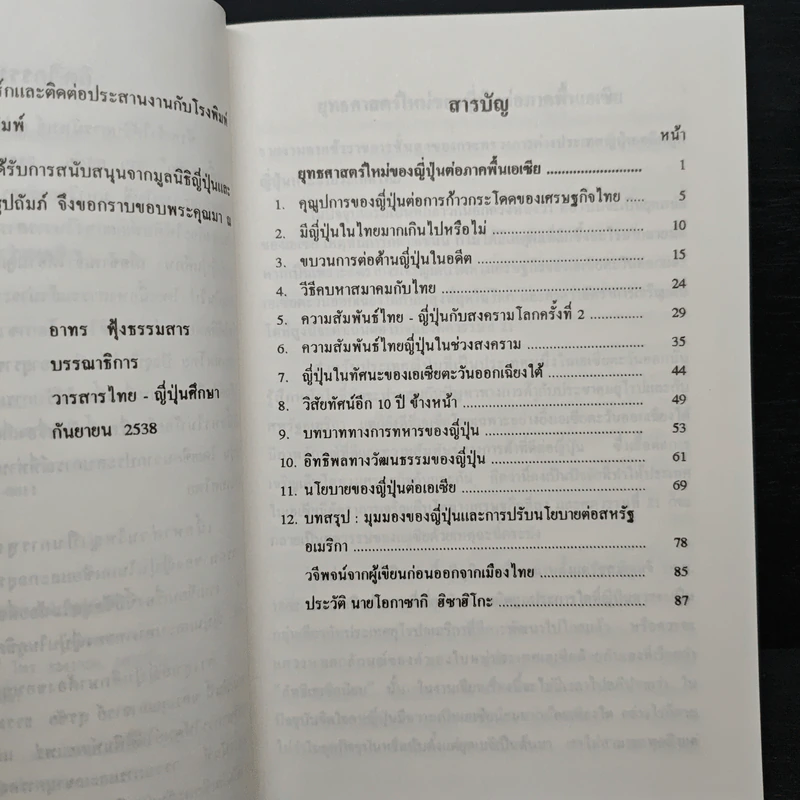 ร์กและติดต่อประสานงานกับโรงพิมพ์
มพ์
ด้รับการสนับสนุนจากมูลนิธิญี่ปุ่นและ
ปถัมภ์ จึงขอกราบขอบพระคุณมา ณ
อาทร ฟุ้งธรรมสาร
บรรณาธิการ
วารสารไทย - ญี่ปุ่นศึกษา
กันยายน 2538
สารบัญ
หน้า
ยุทธศาสตร์ใหม่ของญี่ปุ่นต่อภาคพื้นเอเชีย ........................ 1
1. คุณูปการของญี่ปุ่นต่อการก้าวกระโดดของเศรษฐกิจไทย ..... 5
2. มีญี่ปุ่นในไทยมากเกินไปหรือไม่ ..................................... 10
3. ขบวนการต่อต้านญี่ปุ่นในอดีต ........................................ 15
4. วิธีคบหาสมาคมกับไทย ................................................ 24
5. ความสัมพันธ์ไทย - ญี่ปุ่นกับสงครามโลกครั้งที่ 2 .............. 29
6. ความสัมพันธ์ไทยญี่ปุ่นในช่วงสงคราม ............................. 35
7. ญี่ปุ่นในทัศนะของเอเชียตะวันออกเฉียงใต้ ........................ 44
8. วิสัยทัศน์อีก 10 ปี ข้างหน้า ........................................... 49
9. บทบาททางการทหารของญี่ปุ่น ....................................... 53
10. อิทธิพลทางวัฒนธรรมของญี่ปุ่น ..................................... 61
11. นโยบายของญี่ปุ่นต่อเอเชีย ........................................... 69
12. บทสรุป : มุมมองของญี่ปุ่นและการปรับนโยบายต่อสหรัฐ
อเมริกา ..................................................................... 78
วจีพจน์จากผู้เขียนก่อนออกจากเมืองไทย .......................... 85
ประวัติ นายโอกาซากิ ฮิซาฮิโกะ ..................................... 87